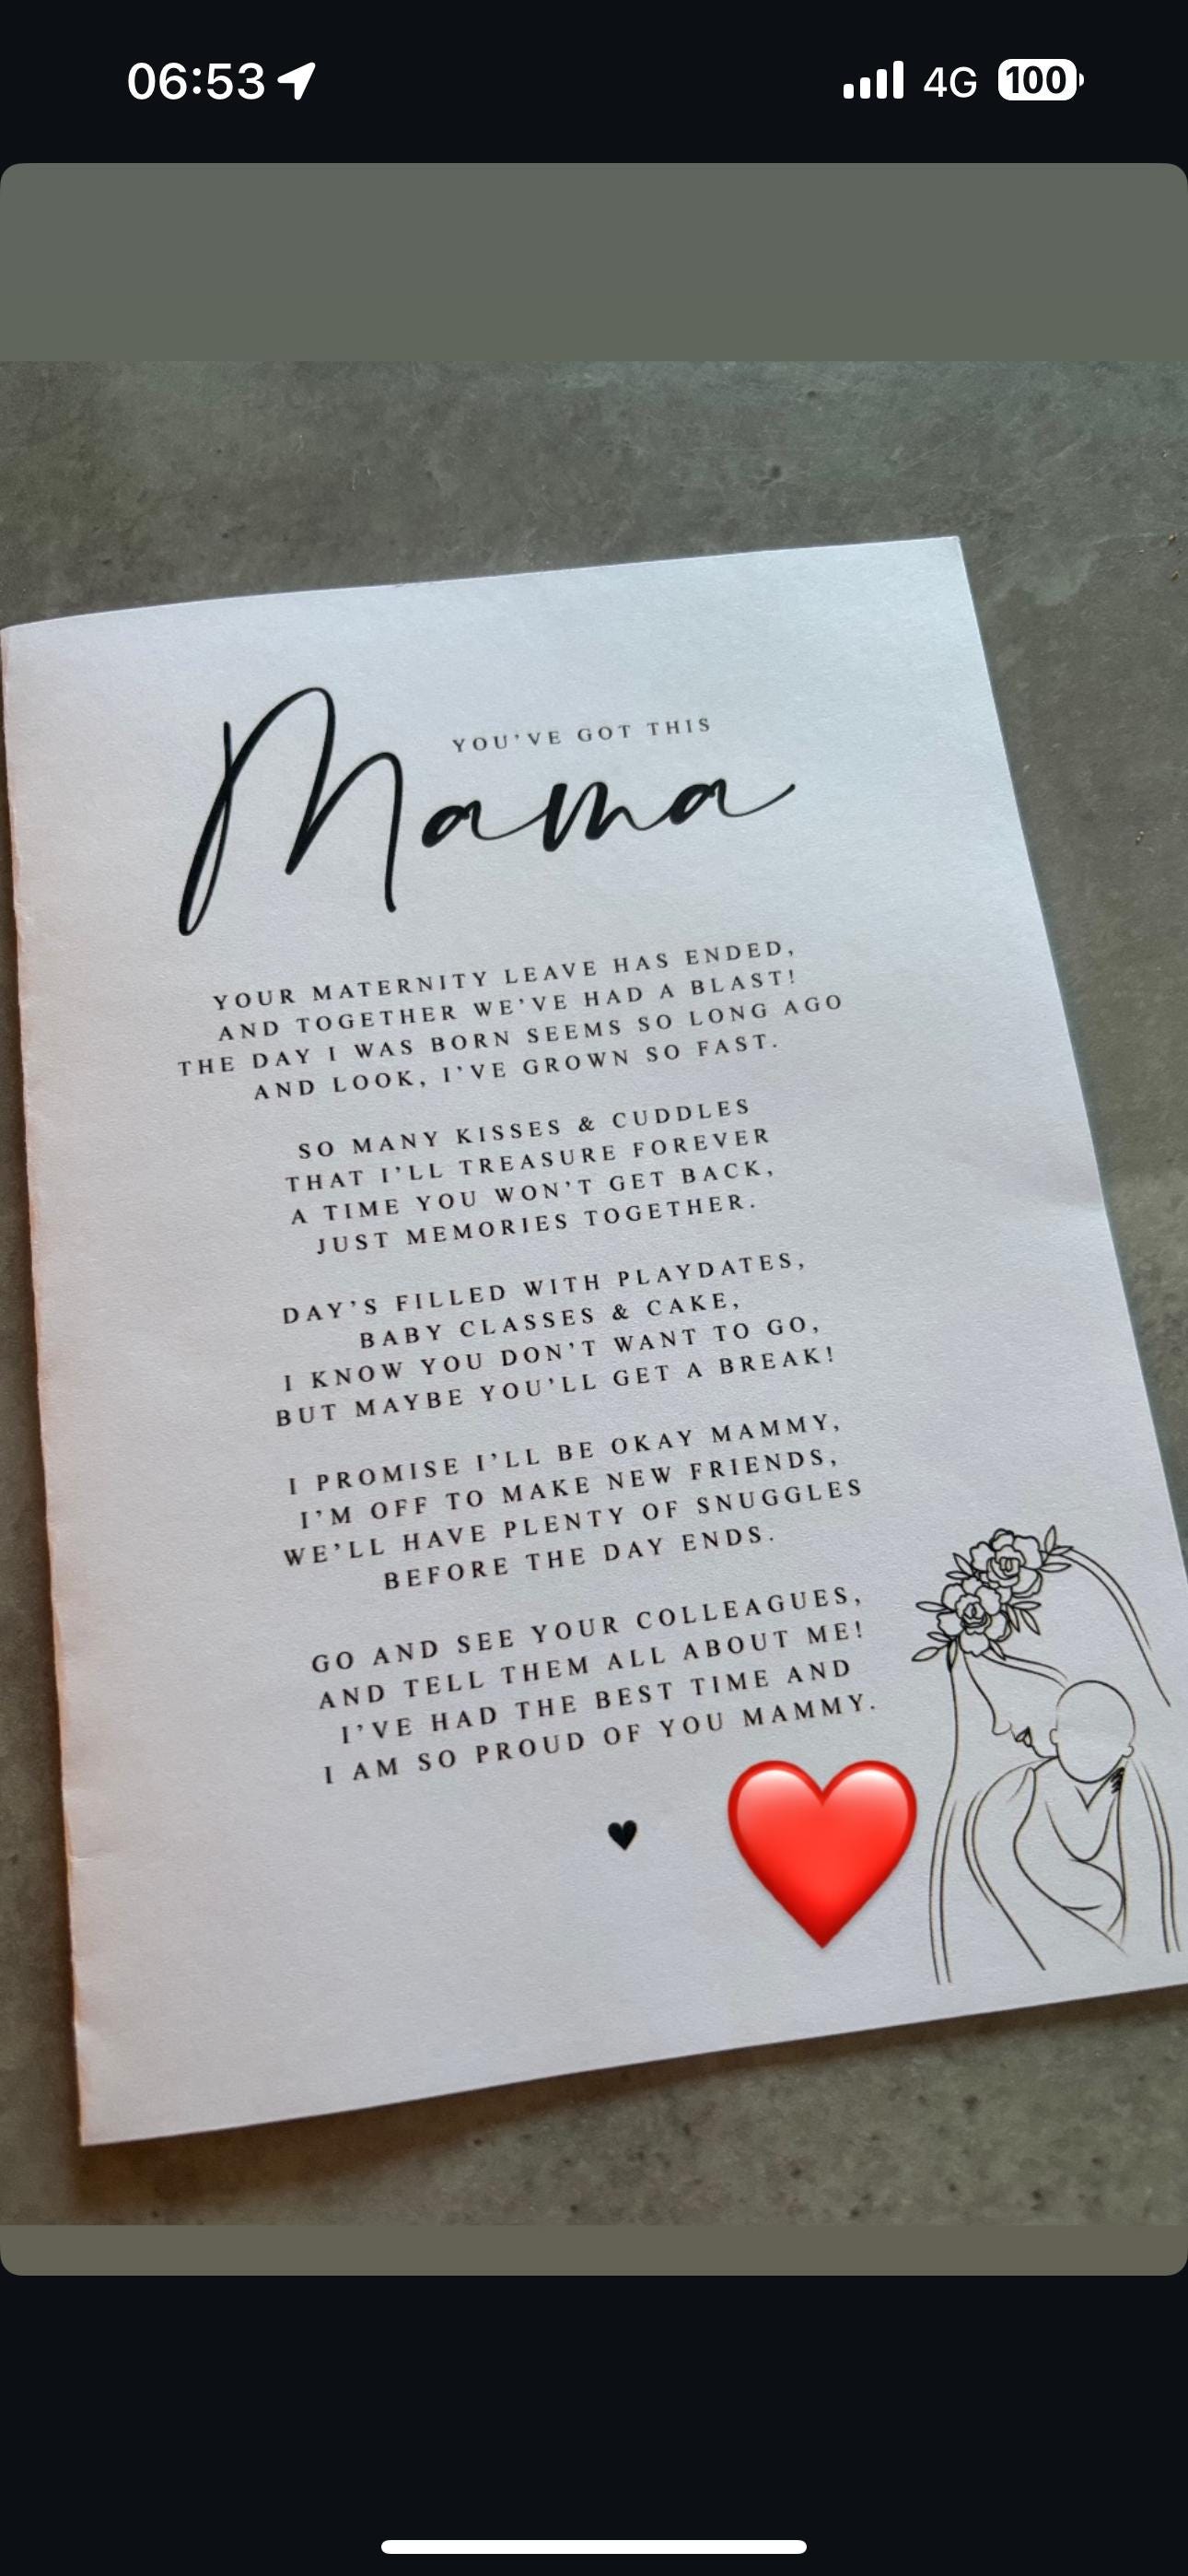 06:53
4G
100
YOU'VE GOT THIS
Mama
YOUR MATERNITY LEAVE HAS ENDED,
AND TOGETHER WE'VE HAD A BLAST!
THE DAY I WAS BORN SEEMS SO LONG AGO
AND LOOK, I'VE GROWN SO FAST.
SO MANY KISSES & CUDDLES
THAT I'LL TREASURE FOREVER
A TIME YOU WON'T GET BACK,
JUST MEMORIES TOGETHER.
DAY'S FILLED WITH PLAYDATES,
BABY CLASSES & CAKE,
I KNOW YOU DON'T WANT TO GO,
BUT MAYBE YOU'LL GET A BREAK!
I PROMISE I'LL BE OKAY MAMMY,
I'M OFF TO MAKE NEW FRIENDS,
WE'LL HAVE PLENTY OF SNUGGLES
BEFORE THE DAY ENDS.
GO AND SEE YOUR COLLEAGUES,
AND TELL THEM ALL ABOUT ME!
I'VE HAD THE BEST TIME AND
I AM SO PROUD OF YOU MAMMY.